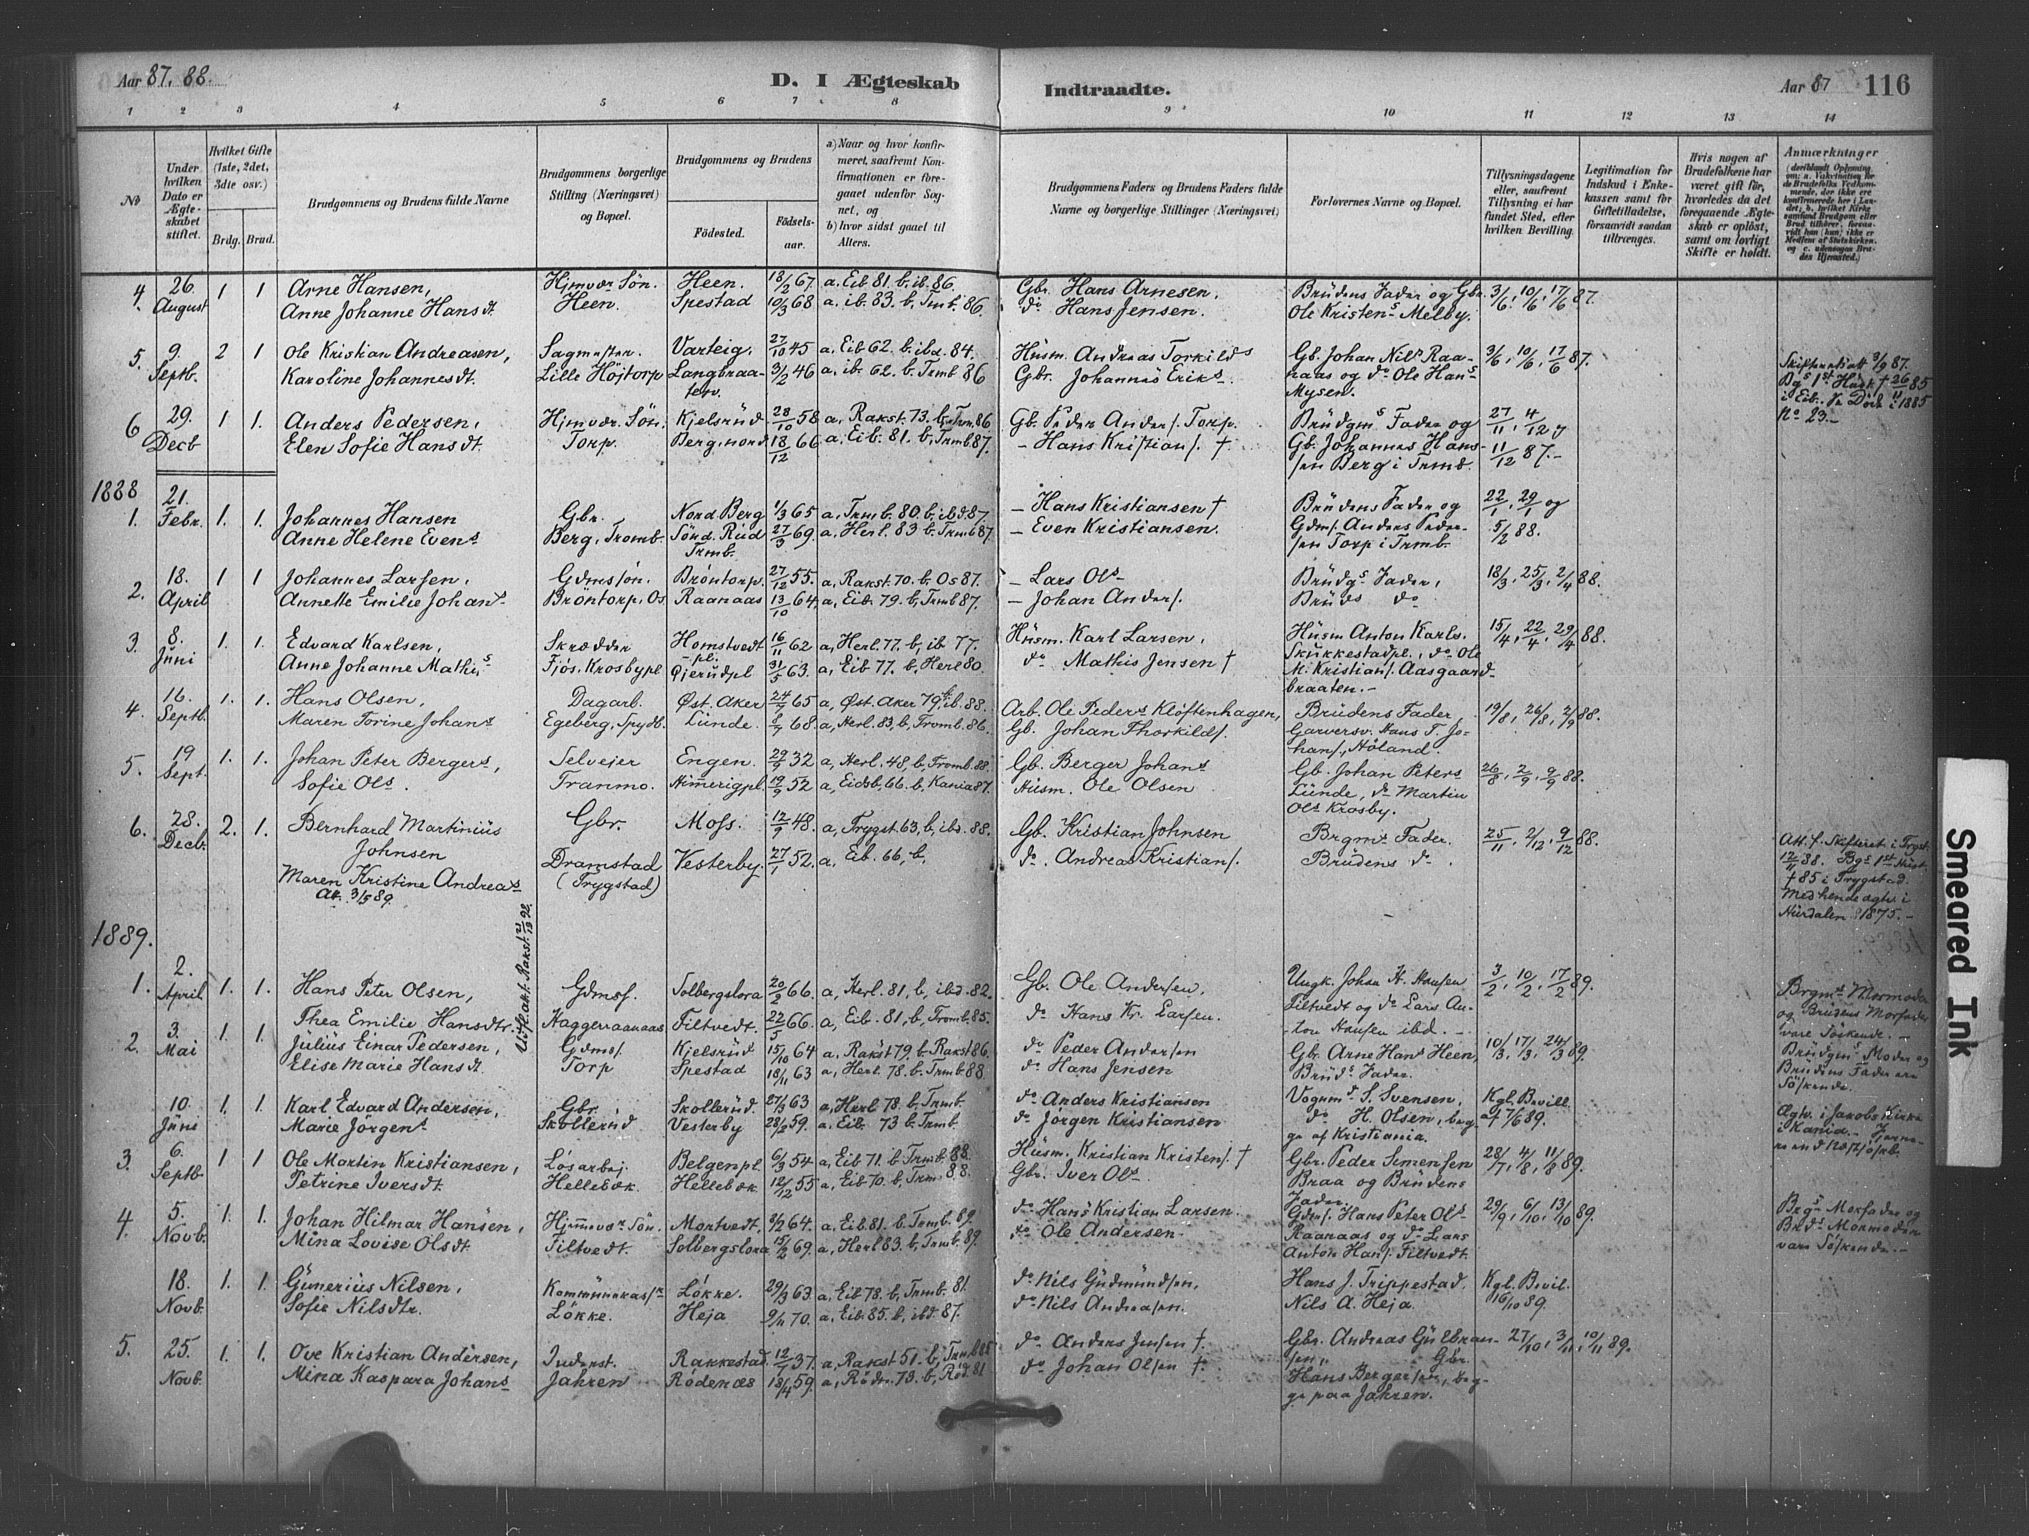 Aar 87. 88.
D. I Ægteskab Indtraadte.
Aar 87 116
1 2 3 4 5 6 7 8 9 10 11 12 13 14
No
Under hvilken Dato er Ægteskabet stiftet.
Hvilket Gifte (1ste, 2det, 3dte osv.)
Brdg. Brud.
Brudgommens og Brudens fulde Navne
Brudgommens borgerlige Stilling (Næringsvei) og Bopæl.
Brudgommens og Brudens
Fødested. Fødselsaar.
a) Naar og hvor konfirmeret, saafremt Konfirmationen er foregaaet udenfor Sognet, og
b) hvor sidst gaaet til Alters.
Brudgommens Faders og Brudens Faders fulde Navne og borgerlige Stillinger (Næringsvei)
Forlovernes Navne og Bopæl.
Tillysningsdagene eller, saafremt Tillysning ei har fundet Sted, efter hvilken Bevilling.
Legitimation for Indskud i Enkekassen samt for Giftetilladelse, forsaavidt saadan tiltrænges.
Hvis nogen af Brudefolkene har været gift før, hvorledes da det foregaaende Ægteskab er opløst, samt om lovligt Skifte er holdt.
Anmærkninger
4. 26. August 1 1 Arne Hansen, Hjmvær. Søn. Heen. 13/2 67 a. Eib 81. b, ib. 86. Gbr. Hans Arnesen. Brudens Fader og Gbr. 3/6, 10/6, 17/6 87.
Anne Johanne Hansdt. Heen. Spestad 10/3 68 a. ib. 83. b, Trmb. 86. do Hans Jensen. Ole Kristens Melby.
5. 9. Septb. 2 1 Ole Kristian Andreasen, Sagmester. Varteig. 27/10 45 a, Eib 62. b. ibd. 84. Husm. Andreas Torkilds Gb. Johan Nils Raa- 3/6, 10/6, 17/6 87.
Karoline Johannesdt. Lille Højtorp Langbraaten. 3/2 46 a. ib. 62. b. Trmb 86 Gbr. Johannes Eriks. naas og do Ole Hans Mysen.
Skifteratt 3/9 87.
Bgs 1st Hust † 26/11 85
i Eib. Se Døde i 1885
No 23.-
6 29. Decb 1. 1. Anders Pedersen, Hjmvær. Søn. Kjelsrud 28/10 58 a, Rakst. 73. b, Trm. 86 Gb. Peder Anders. Torp. Brudgms Fader og 27/11, 4/12,
Elen Sofie Hansdt. Torp. Berg, nord 18/12 66 a, Eib. 81. b, Trmb 87. - Hans Kristians. † Gb. Johannes Hanssen Berg i Trmb. 11/12 87.-
1888
1. 21. Febr. 1. 1. Johannes Hansen Gbr. Nord Berg 1/3 65 a, Trmb. 80. b, ibd. 87. - Hans Kristiansen † Brudens Fader og 22/1, 29/1 og
Anne Helene Evens Berg, Tromb. Sønd. Rud Trmb. 27/3 69. a, Herl. 83 b, Trmb 87. - Even Kristiansen. Gdms. Anders Pedersen Torp i Trmb. 5/2 88.
2. 18. April 1 1 Johannes Larsen, Gdmssøn. Brøntorp. 27/12 55. a, Rakst. 70. b, Os 87. - Lars Ols Brudgs Fader, 18/3, 25/3, 2/4 88.
Annette Emilie Johans Brøntorp, Os Raanaas 13/10 64. a, Eib. 79. b, Trmb 87. - Johan Anders. Brudes do
3. 8. Juni 1. 1. Edvard Karlsen, Skrædder Homstvedtpl. 16/11 62 a, Herl. 77. b, ib 77. Husm. Karl Larsen, Husm Anton Karls. 15/4, 22/4, 29/4 88.
Anne Johanne Mathis Fjøs. Krosbypl Gjerudpl 31/5 63. a, Eib 77. b, Herl 80. do Mathis Jensen † Skukkestadpl., do Ole M. Kristians. Aasgaardbraaten.-
4. 16. Septb. 1. 1. Hans Olsen, Dagarb. Øst. Aker 24/7 65 a, Øst. Aker 79, b, ib. 88. Arb. Ole Peders Kløftenhagen, Brudens Fader, 19/8, 26/8, 2/9 88.
Maren Torine Johans Egeberg, Spydb. Lunde. 8/7 68 a, Herl. 83, b, Tromb. 86. Gb. Johan Thorkilds. Garversv. Hans T. Johans., Høland.
5. 19 Sept. 1. 1. Johan Peter Bergers, Selveier Engen. 29/9 32 a, Herl. 48, b, Tromb. 88. Gb. Berger Johans Gb. Johan Peters 26/8, 2/9, 9/9 88.
Sofie Ols. Tranmo. Himmerigpl. 19/9 52 a, Eidsb. 66. b, Kania 87. Husm. Ole Olsen Lunde, do Martin Ols Krosby.
6. 28. Decb. 2. 1. Bernhard Martinius Johnsen Gbr. Moss. 12/9 48. a, Trygst. 63, b, ibd. 88. Gb. Kristian Johnsen Brgms Fader. 25/11, 2/12, 9/12 88.
Maren Kristine Andreas Dramstad (Trygstad) Vesterby. 27/1 52. a, Eib. 66, b, do. Andreas Kristians. Brudens do
At. 3/5 89.
Att. f. Skifteret i Trygst.
12/11 88. Bgs 1st Hust
† 85 i Trygstad.
Med hende agtv. i
Hurdalen 1875.-
1889.
Utfl. akt. Rakst. 21/12 92.
1. 2. April 1. 1. Hans Peter Olsen, Gdmss. Solbergslora 20/2 66. a, Herl. 81, b, ibd. 82. Gb. Ole Andersen. Ungk. Johan H. Hansen 3/2, 10/2, 17/2 89.
Thea Emilie Hansdtr. Haggerraanaas Filtvedt. 22/5 66. a, Eib. 81, b, Tromb. 85. do Hans Kr. Larsen. Filtvedt og do Lars Anton Hansen ibd.-
Brgms Mormoder
og Brudens Morfader
vare Søskende.-
2. 3. Mai 1. 1. Julius Einar Pedersen, Gdmss. Kjelsrud 15/10 64 a, Rakst 79. b- Rakst 86. do Peder Andersen Gbr. Arne Hans Heen, 10/3, 17/3, 24/3 89.
Elise Marie Hansdt. Torp Spestad 18/11 63 a, Herl. 78. b, Trmb. 88. do Hans Jensen Bruds Fader.
Brudgms Moder og
Brudens Fader ere
Søskende.
10. Juni 1. 1. Karl Edvard Andersen, Gbr. Skollerud. 27/3 63 a, Herl 78. b, Trmb. do Anders Kristiansen Vognmd S. Svensen, Kgl. Bevill.
Marie Jørgens Skollerud Vesterby 28/2 59. a. Eib. 73 b. Trmb. do Jørgen Kristiansen do H. Olsen, begge af Kristiania. af 7/6 89.
Ægtv. i Jakobs Kirke
i Kania.
3. 6. Septb 1 1 Ole Martin Kristiansen, Løsarbej. Belgenpl. 6/3 54 a, Eib 71. b- Trmb. 88. Husm. Kristian Kristens. † Gbr. Peder Simensen 28/7, 4/8, 11/8 89.
Petrine Iversdt. Hellebæk. Hellebæk 12/12 55 a, Eib 70. b, Trm. 88. Gbr. Iver Ols. Braa og Brudens Fader.
4. 5. Novb. 1. 1. Johan Hilmar Hansen, Hjmmevær. Søn. Mortvedt. 3/2 64. a, Eib. 81. b. Tomb. 89. do Hans Kristian Larsen. Gdms. Hans Peter Ols 29/9, 6/10, 13/10 89.
Mina Lovise Olsdt. Filtvedt. Solbergslora 15/2 69. a, Herl 83. b, Trmb. 89. do Ole Andersen. Raanaas og do Lars Anton Hans. Filtvedt.
Brgs Morfader og
Bruds Mormoder
vare Søskende.-
18. Novb. 1. 1. Gunerius Nilsen, Kommunekassr. Løkke. 29/3 63. a, Eib 78. b, Trmb. 81. do Nils Gudmundsen, Hans J. Trippestad. Kgl. Bevil.
Sofie Nilsdtr. Løkke. Heja 9/11 70. a, Eib 85. b, ibd. 87. do Nils Andreasen. Nils A. Heja. 16/10 89.
5. 25. Novb. 1. 1. Ove Kristian Andersen, Inderst. Rakkestad. 12/2 37. a, Rakst 51. b, Trmb 85 do Anders Jensen † Gbr. Andreas Gulbransen, Gbr. 27/10, 3/11, 10/11 89.
Mina Kaspara Johans Jahren Rødenæs 13/4 59. a, Rødn. 73. b, Rød. 81 do Johan Olsen † Hans Bergersen, begge paa Jahren.
Smeared Ink